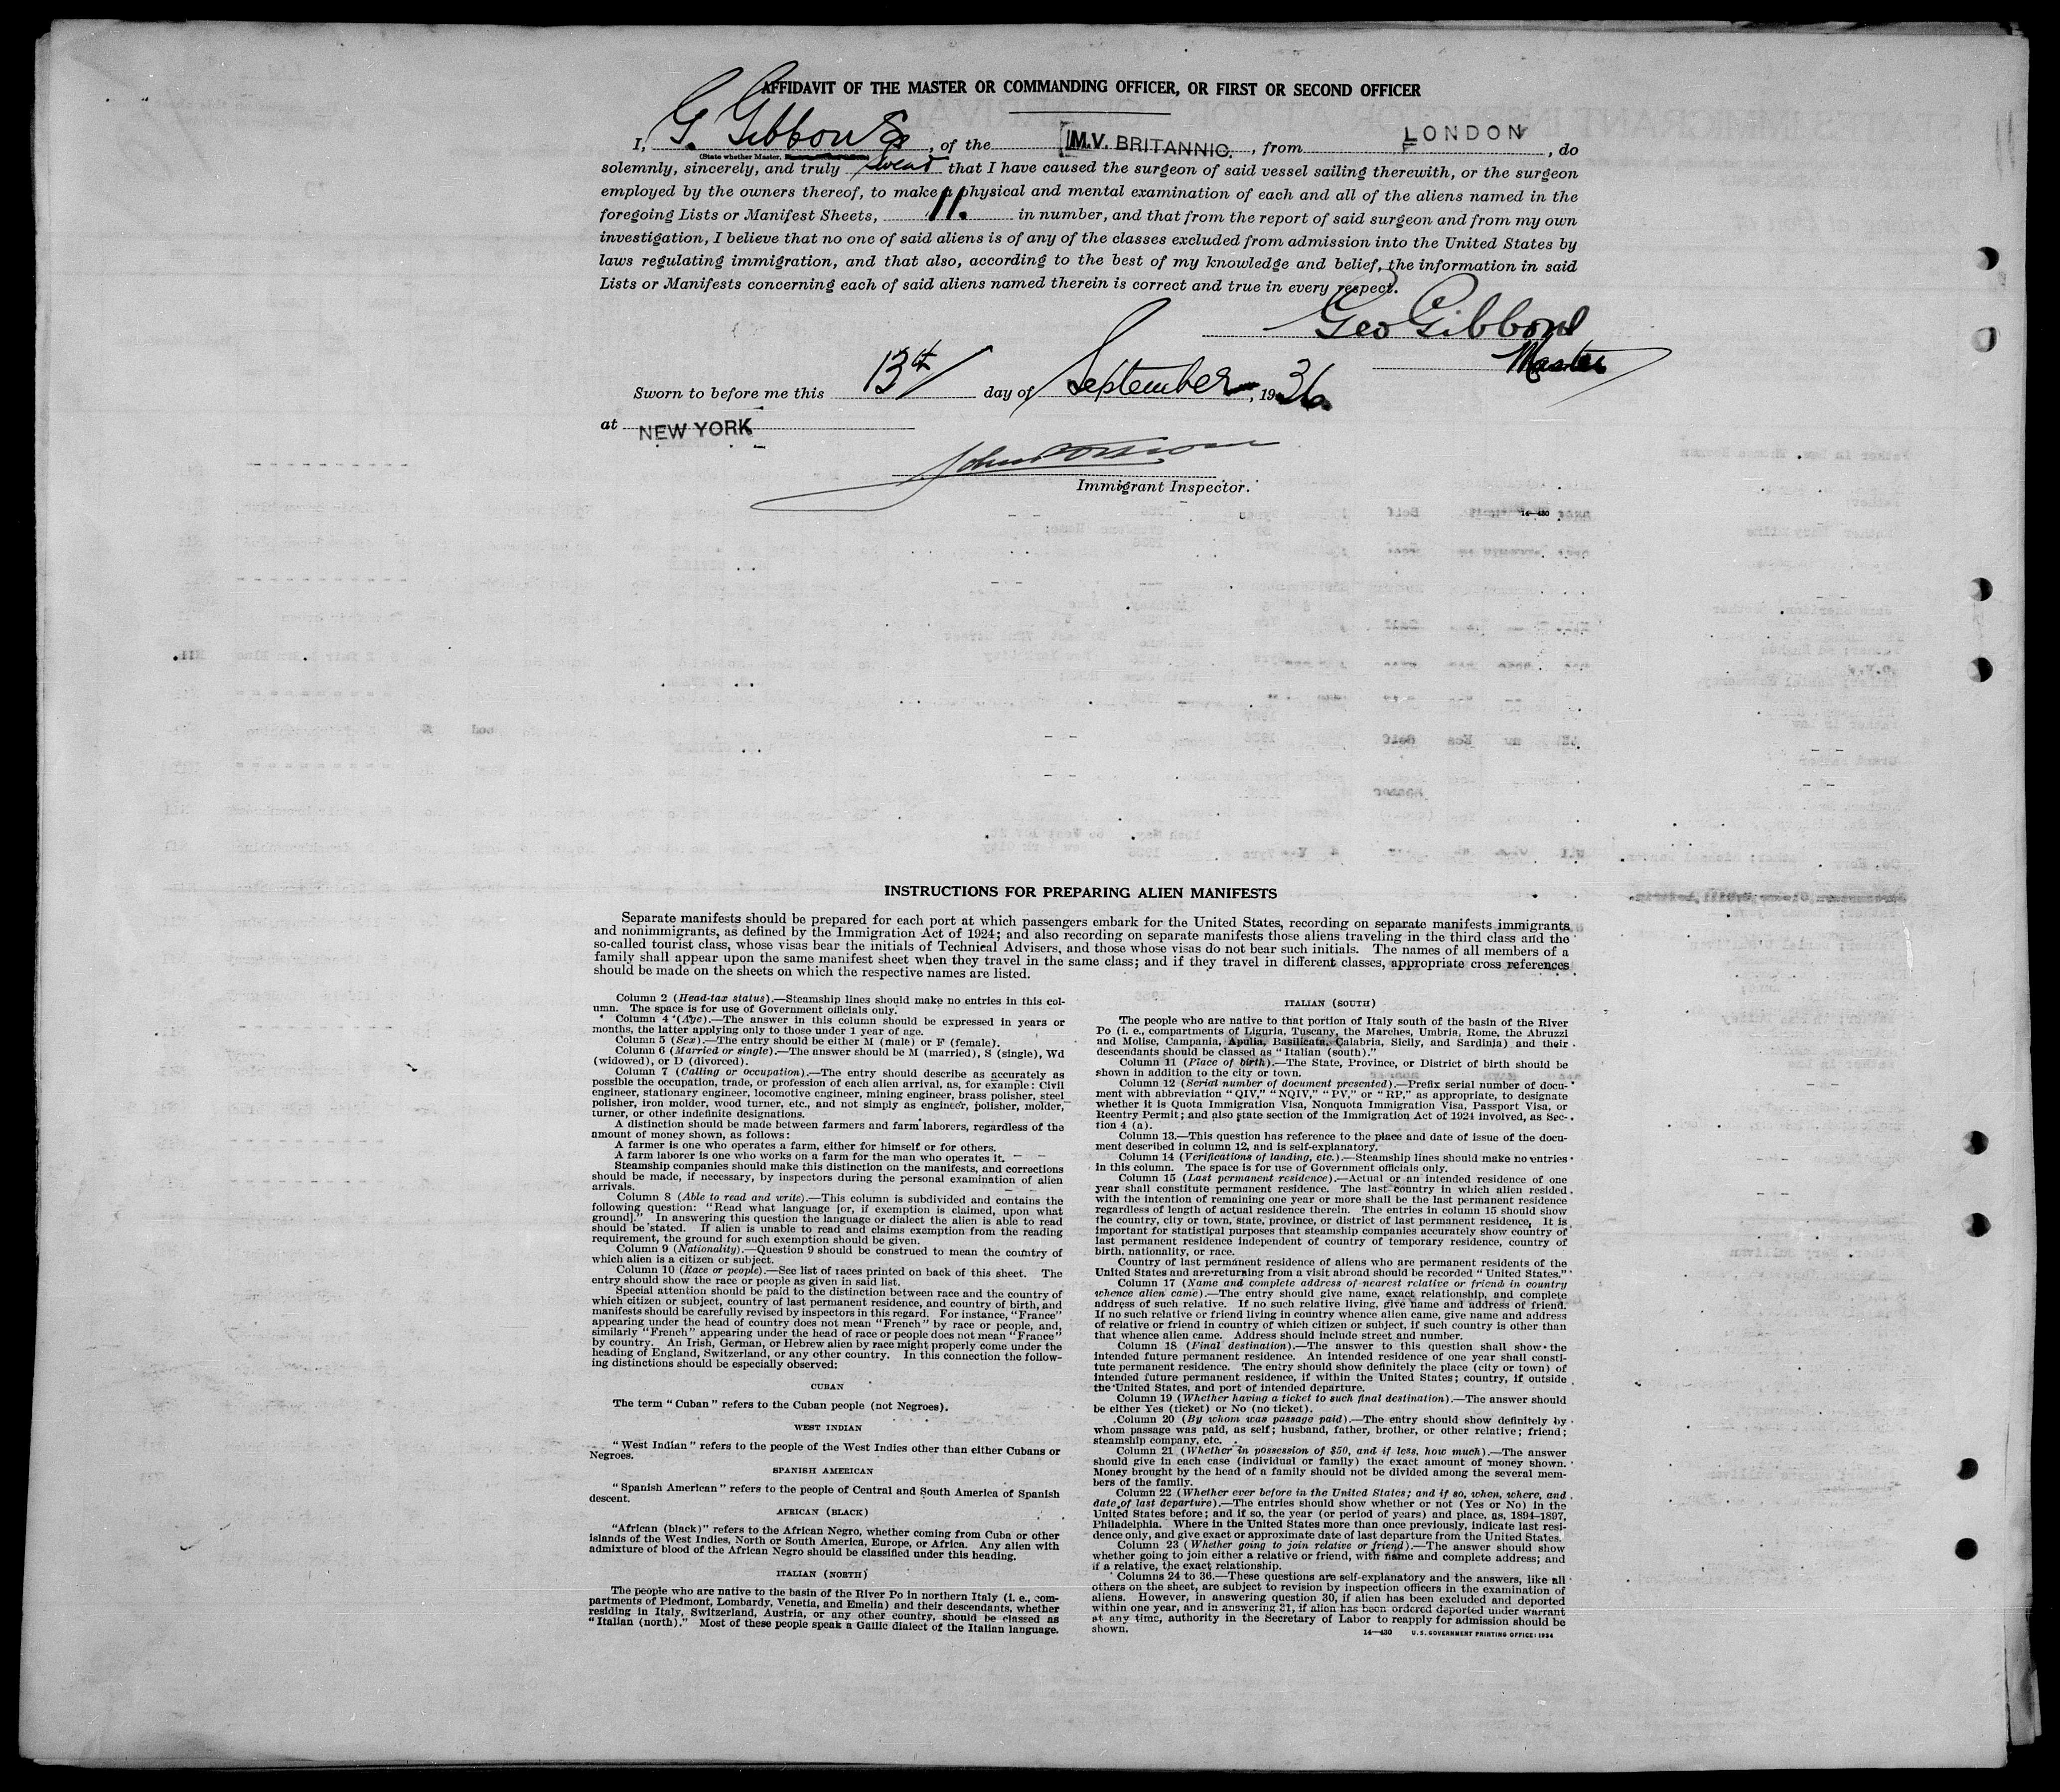 AFFIDAVIT OF THE MASTER OR COMMANDING OFFICER, OR FIRST OR SECOND OFFICER
I, G. Gibbons, of the M.V. BRITANNIC., from LONDON, do
(State whether Master,
solemnly, sincerely, and truly swear that I have caused the surgeon of said vessel sailing therewith, or the surgeon
employed by the owners thereof, to make a physical and mental examination of each and all of the aliens named in the
foregoing Lists or Manifest Sheets, 11. in number, and that from the report of said surgeon and from my own
investigation, I believe that no one of said aliens is of any of the classes excluded from admission into the United States by
laws regulating immigration, and that also, according to the best of my knowledge and belief, the information in said
Lists or Manifests concerning each of said aliens named therein is correct and true in every respect.
Geo Gibbons
Master
Sworn to before me this 13th day of September, 1936
at NEW YORK
Immigrant Inspector.
14—430
INSTRUCTIONS FOR PREPARING ALIEN MANIFESTS
Separate manifests should be prepared for each port at which passengers embark for the United States, recording on separate manifests immigrants
and nonimmigrants, as defined by the Immigration Act of 1924; and also recording on separate manifests those aliens traveling in the third class and the
so-called tourist class, whose visas bear the initials of Technical Advisers, and those whose visas do not bear such initials. The names of all members of a
family shall appear upon the same manifest sheet when they travel in the same class; and if they travel in different classes, appropriate cross references
should be made on the sheets on which the respective names are listed.
Column 2 (Head-tax status).—Steamship lines should make no entries in this col-
umn. The space is for use of Government officials only.
Column 4 (Age).—The answer in this column should be expressed in years or
months, the latter applying only to those under 1 year of age.
Column 5 (Sex).—The entry should be either M (male) or F (female).
Column 6 (Married or single).—The answer should be M (married), S (single), Wd
(widowed), or D (divorced).
Column 7 (Calling or occupation).—The entry should describe as accurately as
possible the occupation, trade, or profession of each alien arrival, as, for example: Civil
engineer, stationary engineer, locomotive engineer, mining engineer, brass polisher, steel
polisher, iron molder, wood turner, etc., and not simply as engineer, polisher, molder,
turner, or other indefinite designations.
A distinction should be made between farmers and farm laborers, regardless of the
amount of money shown, as follows:
A farmer is one who operates a farm, either for himself or for others.
A farm laborer is one who works on a farm for the man who operates it.
Steamship companies should make this distinction on the manifests, and corrections
should be made, if necessary, by inspectors during the personal examination of alien
arrivals.
Column 8 (Able to read and write).—This column is subdivided and contains the
following question: "Read what language [or, if exemption is claimed, upon what
ground]." In answering this question the language or dialect the alien is able to read
should be stated. If alien is unable to read and claims exemption from the reading
requirement, the ground for such exemption should be given.
Column 9 (Nationality).—Question 9 should be construed to mean the country of
which alien is a citizen or subject.
Column 10 (Race or people).—See list of races printed on back of this sheet. The
entry should show the race or people as given in said list.
Special attention should be paid to the distinction between race and the country of
which citizen or subject, country of last permanent residence, and country of birth, and
manifests should be carefully revised by inspectors in this regard. For instance, "France"
appearing under the head of country does not mean "French" by race or people, and,
similarly "French" appearing under the head of race or people does not mean "France"
by country. An Irish, German, or Hebrew alien by race might properly come under the
heading of England, Switzerland, or any other country. In this connection the follow-
ing distinctions should be especially observed:
CUBAN
The term "Cuban" refers to the Cuban people (not Negroes).
WEST INDIAN
"West Indian" refers to the people of the West Indies other than either Cubans or
Negroes.
SPANISH AMERICAN
"Spanish American" refers to the people of Central and South America of Spanish
descent.
AFRICAN (BLACK)
"African (black)" refers to the African Negro, whether coming from Cuba or other
islands of the West Indies, North or South America, Europe, or Africa. Any alien with
admixture of blood of the African Negro should be classified under this heading.
ITALIAN (NORTH)
The people who are native to the basin of the River Po in northern Italy (i. e., com-
partments of Piedmont, Lombardy, Venetia, and Emelia) and their descendants, whether
residing in Italy, Switzerland, Austria, or any other country, should be classed as
"Italian (north)." Most of these people speak a Gallic dialect of the Italian language.
ITALIAN (SOUTH)
The people who are native to that portion of Italy south of the basin of the River
Po (i. e., compartments of Liguria, Tuscany, the Marches, Umbria, Rome, the Abruzzi
and Molise, Campania, Apulia, Basilicata, Calabria, Sicily, and Sardinia) and their
descendants should be classed as "Italian (south)."
Column 11 (Place of birth).—The State, Province, or District of birth should be
shown in addition to the city or town.
Column 12 (Serial number of document presented).—Prefix serial number of docu-
ment with abbreviation "QIV," "NQIV," "PV," or "RP," as appropriate, to designate
whether it is Quota Immigration Visa, Nonquota Immigration Visa, Passport Visa, or
Reentry Permit; and also state section of the Immigration Act of 1924 involved, as Sec-
tion 4 (a).
Column 13.—This question has reference to the place and date of issue of the docu-
ment described in column 12, and is self-explanatory.
Column 14 (Verifications of landing, etc.).—Steamship lines should make no entries
in this column. The space is for use of Government officials only.
Column 15 (Last permanent residence).—Actual or an intended residence of one
year shall constitute permanent residence. The last country in which alien resided
with the intention of remaining one year or more shall be the last permanent residence
regardless of length of actual residence therein. The entries in column 15 should show
the country, city or town, state, province, or district of last permanent residence. It is
important for statistical purposes that steamship companies accurately show country of
last permanent residence independent of country of temporary residence, country of
birth, nationality, or race.
Country of last permanent residence of aliens who are permanent residents of the
United States and are returning from a visit abroad should be recorded "United States."
Column 17 (Name and complete address of nearest relative or friend in country
whence alien came).—The entry should give name, exact relationship, and complete
address of such relative. If no such relative living, give name and address of friend.
If no such relative or friend living in country whence alien came, give name and address
of relative or friend in country of which citizen or subject, if such country is other than
that whence alien came. Address should include street and number.
Column 18 (Final destination).—The answer to this question shall show the
intended future permanent residence. An intended residence of one year shall consti-
tute permanent residence. The entry should show definitely the place (city or town) of
intended future permanent residence, if within the United States; country, if outside
the United States, and port of intended departure.
Column 19 (Whether having a ticket to such final destination).—The answer should
be either Yes (ticket) or No (no ticket).
Column 20 (By whom was passage paid).—The entry should show definitely by
whom passage was paid, as self; husband, father, brother, or other relative; friend;
steamship company, etc.
Column 21 (Whether in possession of $50, and if less, how much).—The answer
should give in each case (individual or family) the exact amount of money shown.
Money brought by the head of a family should not be divided among the several mem-
bers of the family.
Column 22 (Whether ever before in the United States; and if so, when, where, and
date of last departure).—The entries should show whether or not (Yes or No) in the
United States before; and if so, the year (or period of years) and place, as, 1894–1897,
Philadelphia. Where in the United States more than once previously, indicate last resi-
dence only, and give exact or approximate date of last departure from the United States.
Column 23 (Whether going to join relative or friend).—The answer should show
whether going to join either a relative or friend, with name and complete address; and
if a relative, the exact relationship.
Columns 24 to 36.—These questions are self-explanatory and the answers, like all
others on the sheet, are subject to revision by inspection officers in the examination of
aliens. However, in answering question 30, if alien has been excluded and deported
within one year, and in answering 31, if alien has been ordered deported under warrant
at any time, authority in the Secretary of Labor to reapply for admission should be
shown.
14—430 U. S. GOVERNMENT PRINTING OFFICE: 1934